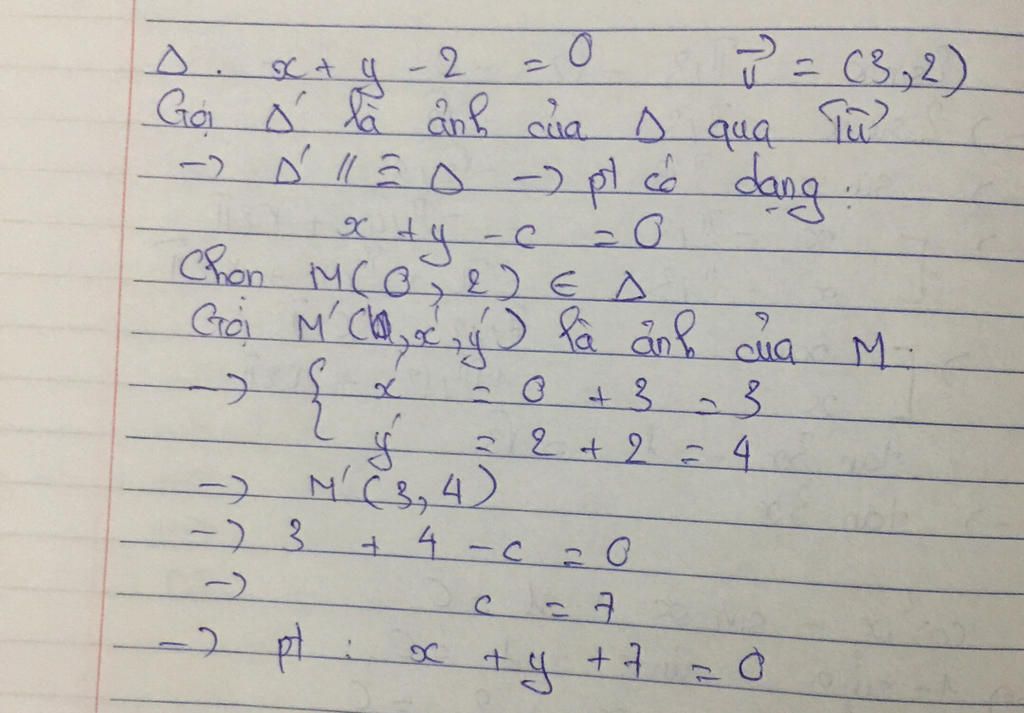 Δ. x + y - 2 = 0 v⃗ = (3, 2)
Gọi Δ' là ảnh của Δ qua Tv⃗
→ Δ' // ≡ Δ → pt có dạng :
x + y - c = 0
Chọn M(0, 2) ∈ Δ
Gọi M'(x', y') là ảnh của M.
→ { x' = 0 + 3 = 3
y' = 2 + 2 = 4
→ M'(3, 4)
→ 3 + 4 - c = 0
→ c = 7
→ pt : x + y + 7 = 0